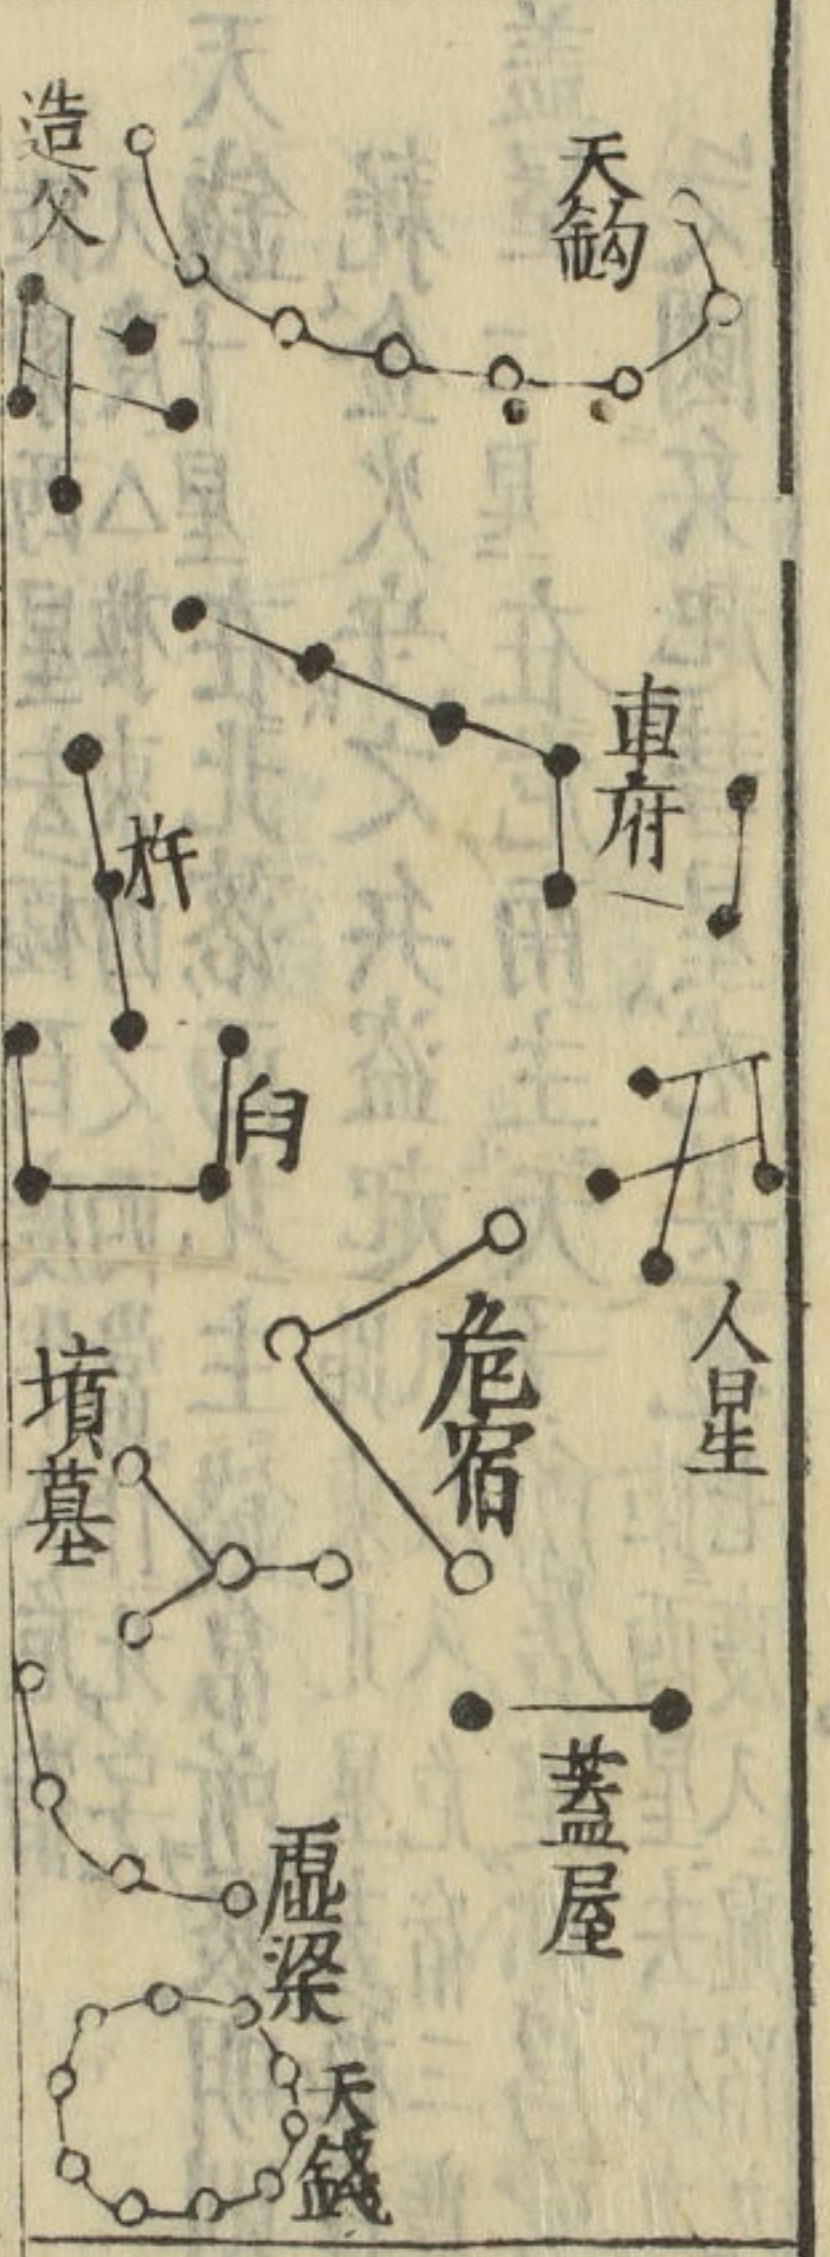 天鈎
造父
車府
杵
臼
人星
危宿
墳墓
蓋屋
虛梁
天錢